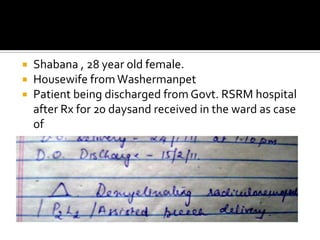 Shabana , 28 year old female.
Housewife from Washermanpet
Patient being discharged from Govt. RSRM hospital
after Rx for 20 daysand received in the ward as case
of
D.O. Delivery - 24/1/11 at 1.10 pm
D.O. Discharge - 15/2/11.
Δ Demyelinating
P2L2 / Assisted breech delivery.